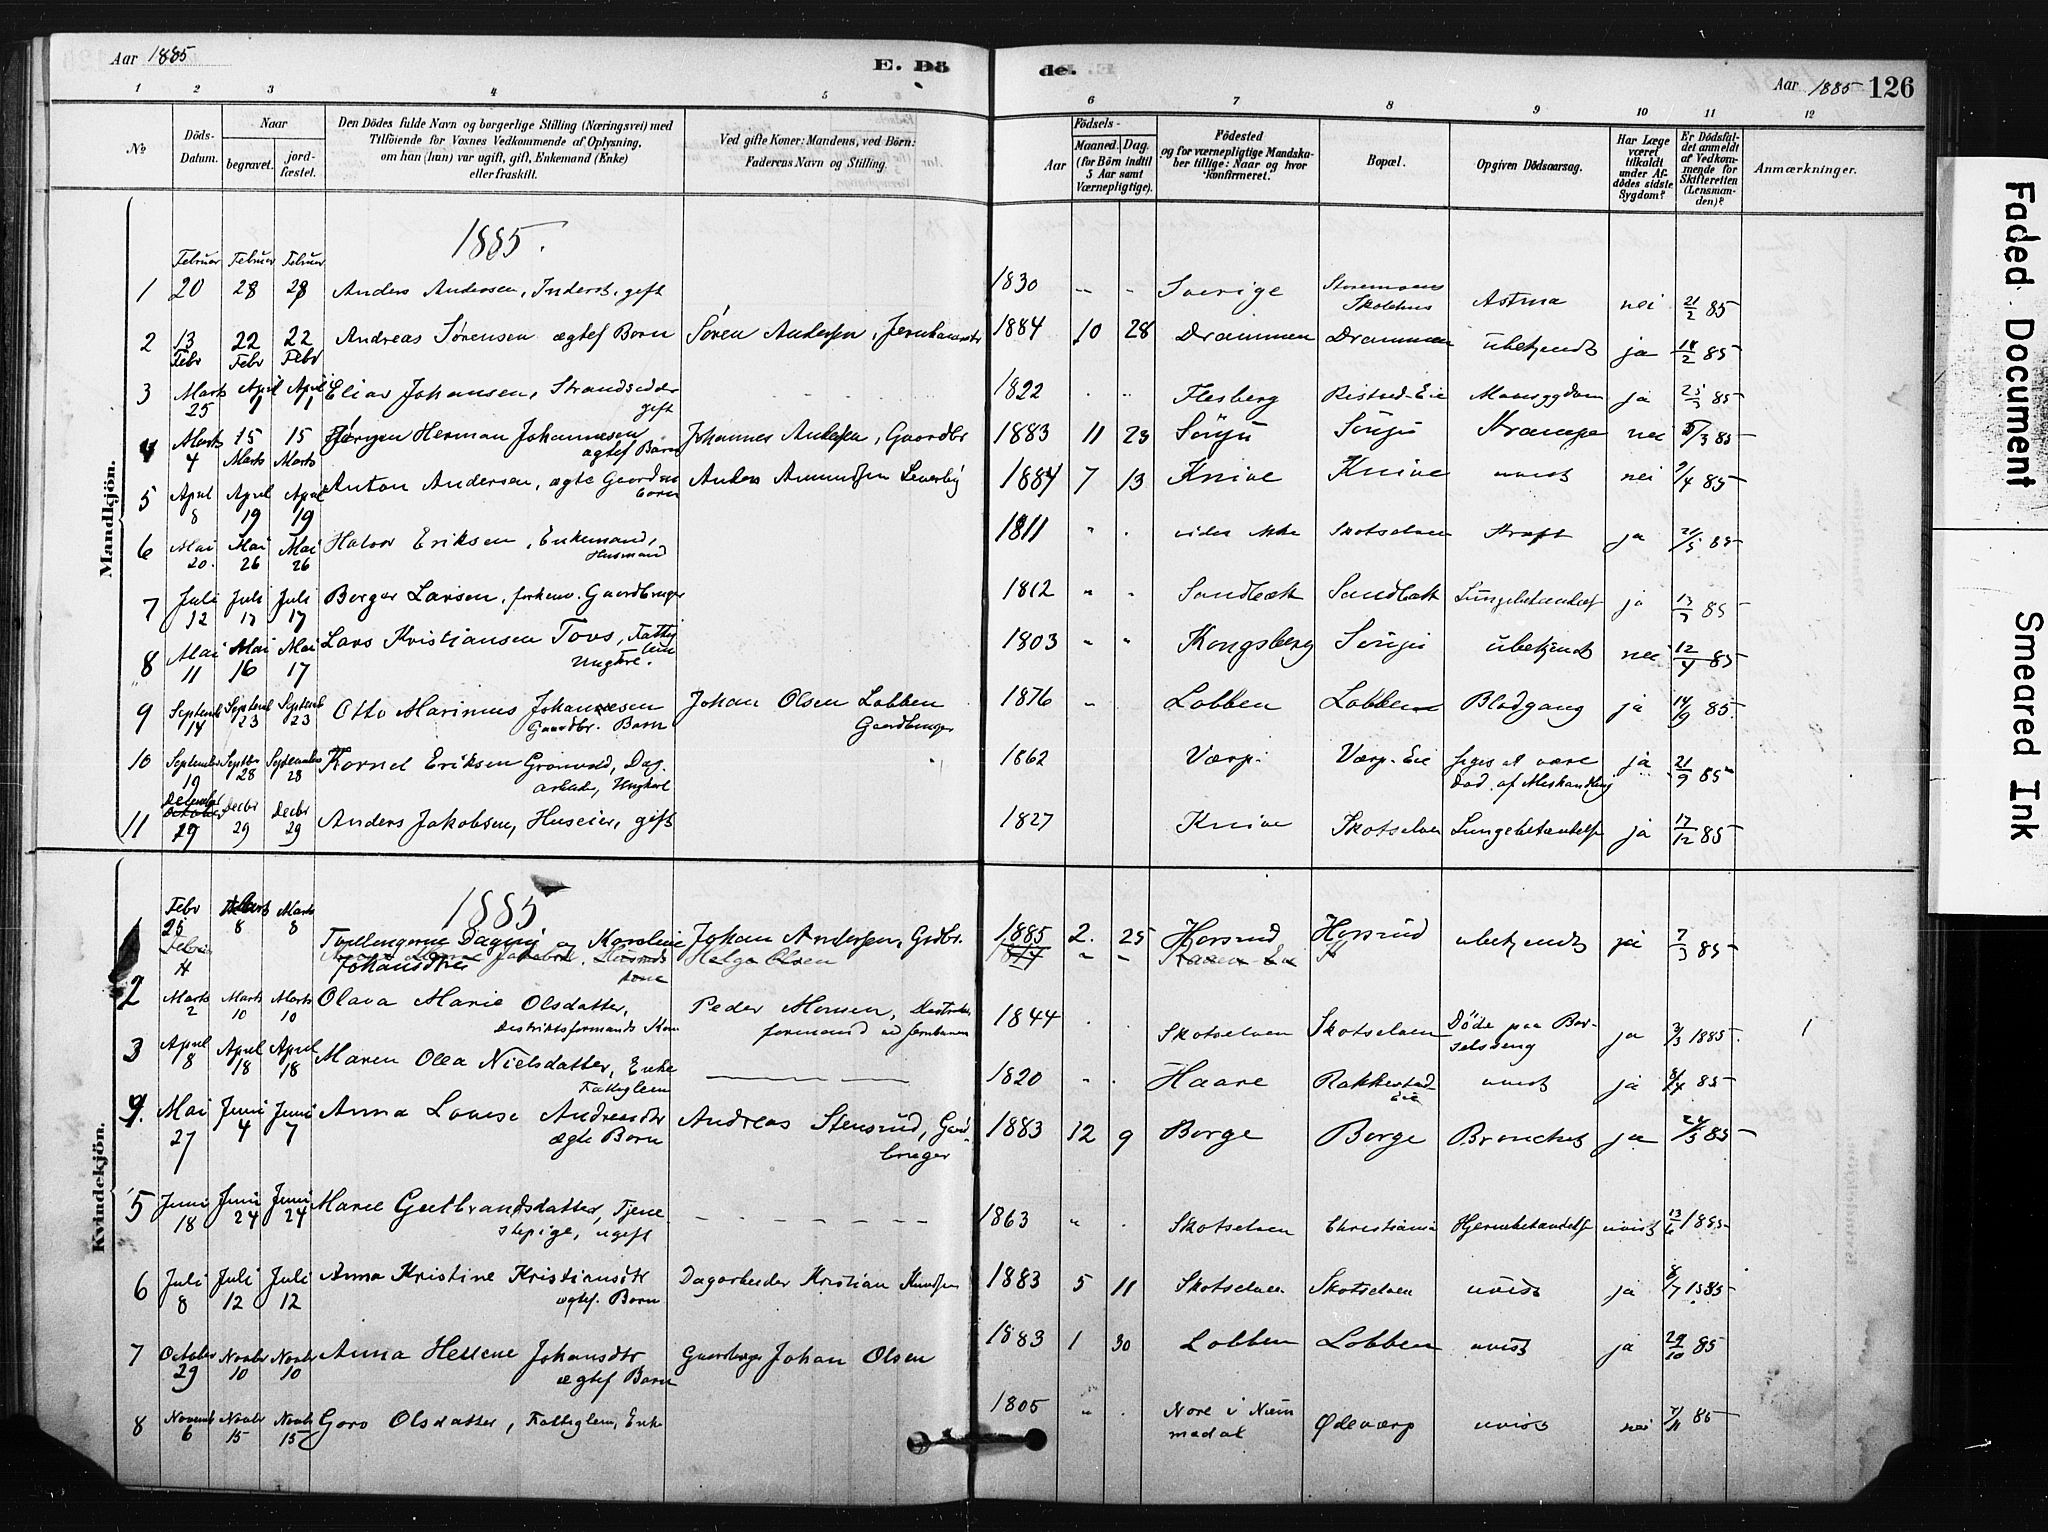 Aar 1885
E. Dö
de.
Aar 1885 126
1 2 3 4 5 6 7 8 9 10 11 12
No
Döds-Datum.
Naar
begravet.
jord-fæstet.
Den Dödes fulde Navn og borgerlige Stilling (Næringsvei) med
Tilföiende for Voxnes Vedkommende af Oplysning,
om han (hun) var ugift, gift, Enkemand (Enke)
eller fraskilt.
Ved gifte Koner: Mandens, ved Börn:
Faderens Navn og Stilling.
Födsels-
Aar
Maaned. Dag.
(for Börn indtil
5 Aar samt
Værnepligtige).
Födested
og for værnepligtige Mandska-
ber tillige: Naar og hvor
konfirmeret.
Bopæl.
Opgiven Dödsaarsag.
Har Læge
været
tilkaldt
under Af-
dödes sidste
Sygdom?
Er Dödsfal-
det anmeldt
af Vedkom-
mende for
Skifteretten
(Lensman-
den)?
Anmærkninger.
Mandkjön.
1885.
Februar Februar Februar
1 20 28 28 Anders Andersen, Inderst, gift 1830 Sverige Astma nei 21/2 85
2 13 Febr 22 Febr 22 Febr Andreas Sørensen ægtef Born Søren Andersen, 1884 10 28 Drammen Drammen ubekjendt ja 14/2 85
3 Marts 25 April 1 April 1 Elias Johansen, Strandsidder gift 1822 Flesberg Ristved-Eie ja 25/3 85
4 Marts 4 15 Marts 15 Marts Jørgen Herman Johannesen ægtef Barn Johannes Andersen, Gaardbr 1883 11 23 Krampe nei 5/3 85
5 April 8 April 19 April 19 Anton Andersen, ægte Born Anders Amundsen 1884 7 13 Knive Knive uvist nei 9/4 85
6 Mai 20. Mai 26 Mai 26 Halvor Eriksen, Enkemand, Husmand 1811 vides ikke Skotselven Kræft ja 21/5 85
7 Juli 12 Juli 17 Juli 17 Borger Larsen, forhenv. Gaardbruger 1812 Sandbæk Sandbæk Lungebetændelse ja 13/7 85
8 Mai 11 Mai 16 Mai 17 Lars Kristiansen Tovs, Fattiglem Ungkrl. 1803 Kongsberg ubekjendt nei 12/4 85
9 Septemb 14 Septemb 23 Septemb 23 Otto Marinius Johannesen Gaardbr. Barn Johan Olsen Lobben Gaardbruger 1876 Lobben Lobben Blodgang ja 14/9 85
10 September 19 Septbr 28 September 28 Kornel Eriksen Grønvold, Dagarbeid, Ungkarl 1862 Værp. Værp-Eie siges at være Død af Mishandling ja 21/9 85
11 December 29 Decbr 29 Decbr 29 Anders Jakobsen, Huseier, gift 1827 Knive Skotselven Lungebetændelse ja 17/12 85
Kvindekjön.
1885
Febr 25 Marts 8 Marts 8 Tvillingerne Dagny og Karoline Johansdtre Johan Andersen, Grdbr. 1885 2. 25 Horsrud Horsrud ubekjendt ja 7/3 85
Helge Olsen
2 Marts 2 Marts 10 Marts 10 Olava Marie Olsdatter, Destriktsformands Kone Peder Monsen, formand ved Jernbanen 1844 Skotselven Skotselven Døde paa Barselsseng ja 3/3 1885.
3 April 8 April 18 April 18 Maren Olea Nielsdatter, Enke Fattiglem 1820 Haare Rakkestad-Eie uvist ja 8/4 85
4. Mai 27 Juni 4 Juni 7 Anna Lovise Andreasdtr ægte Born Andreas Stensrud, Gaardbruger 1883 12 9 Borge Borge Bronchit ja 85
5 Juni 18 Juni 24 Juni 24 Marie Gulbrandsdatter, Tjenestepige, ugift 1863 Skotselven Christiania Hjernebetændelse uvist 13/6 1885
6 Juli 8 Juli 12 Juli 12 Anna Kristine Kristiansdtr ægtef. Born Dagarbeider Kristian Knudsen 1883 5 11 Skotselven Skotselven uvist ja 8/7 1885
7 October 29 Novbr 10 Novbr 10 Anna Hellene Johansdtr ægtef Barn Gaardbruger Johan Olsen 1883 1 30 Lobben Lobben uvist ja 29/10 85
8 Novemb 6 Novbr 15 Novbr 15 Goro Olsdatter, Fattiglem, Enke 1805 Nore i Nummedal Ødeværp uvist nei 7/11 85
Faded Document
Smeared Ink